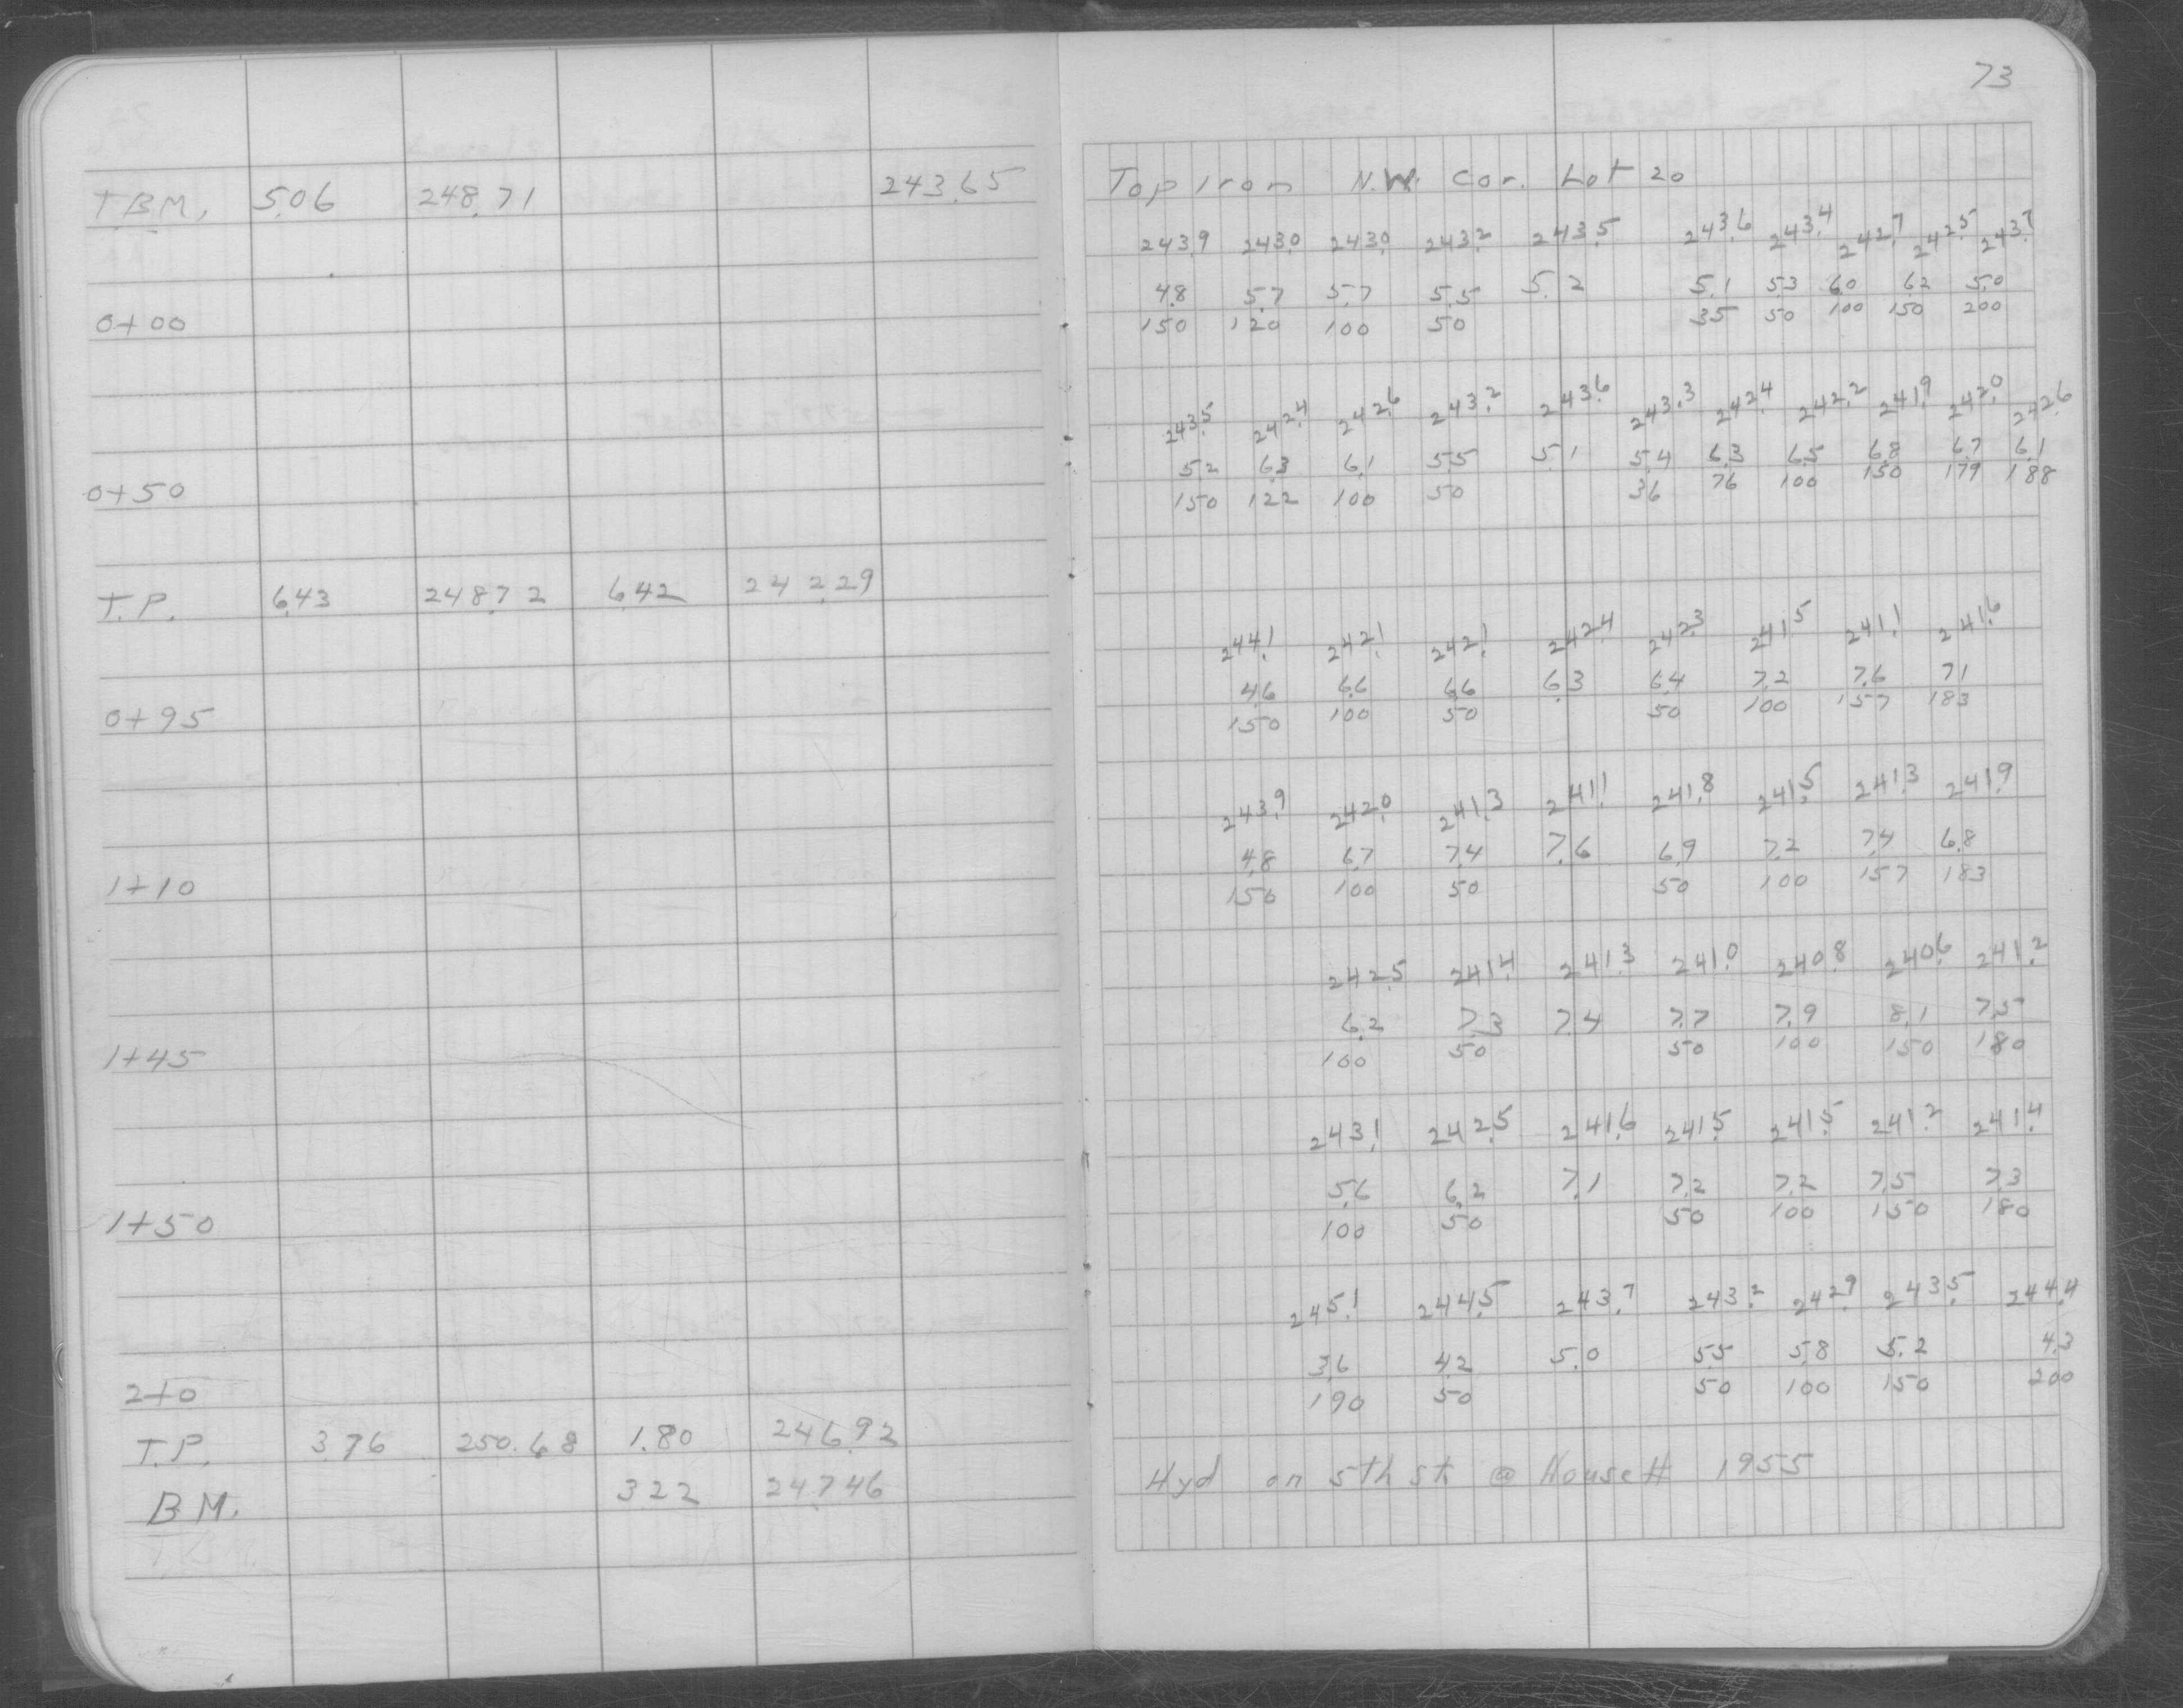 73
TBM. 5.06 248.71 243.65 Top Iron N.W. Cor. Lot 20
243.9 243.0 243.0 243.2 243.5 243.6 243.4 242.7 242.5 243.7
4.8 5.7 5.7 5.5 5.2 5.1 5.3 6.0 6.2 5.0
0+00 150 120 100 50 35 50 100 150 200
243.5 242.4 242.6 243.2 243.6 243.3 242.4 242.2 241.9 242.0 242.6
5.2 6.3 6.1 5.5 5.1 5.4 6.3 6.5 6.8 6.7 6.1
0+50 150 122 100 50 36 76 100 150 179 188
T.P. 6.43 248.72 6.42 242.29
244.1 242.1 242.1 242.4 242.3 241.5 241.1 241.6
4.6 6.6 6.6 6.3 6.4 7.2 7.6 7.1
0+95 150 100 50 50 100 157 183
243.9 242.0 241.3 241.1 241.8 241.5 241.3 241.9
4.8 6.7 7.4 7.6 6.9 7.2 7.4 6.8
1+10 150 100 50 50 100 157 183
242.5 241.4 241.3 241.0 240.8 240.6 241.2
6.2 7.3 7.4 7.7 7.9 8.1 7.5
1+45 100 50 50 100 150 180
243.1 242.5 241.6 241.5 241.5 241.2 241.4
5.6 6.2 7.1 7.2 7.2 7.5 7.3
1+50 100 50 50 100 150 180
245.1 244.5 243.7 243.2 242.9 243.5 244.4
3.6 4.2 5.0 5.5 5.8 5.2 4.3
2+0 190 50 50 100 150 200
T.P. 3.76 250.68 1.80 246.92
B.M. 3.22 247.46 Hyd on 5th St. @ House # 1955